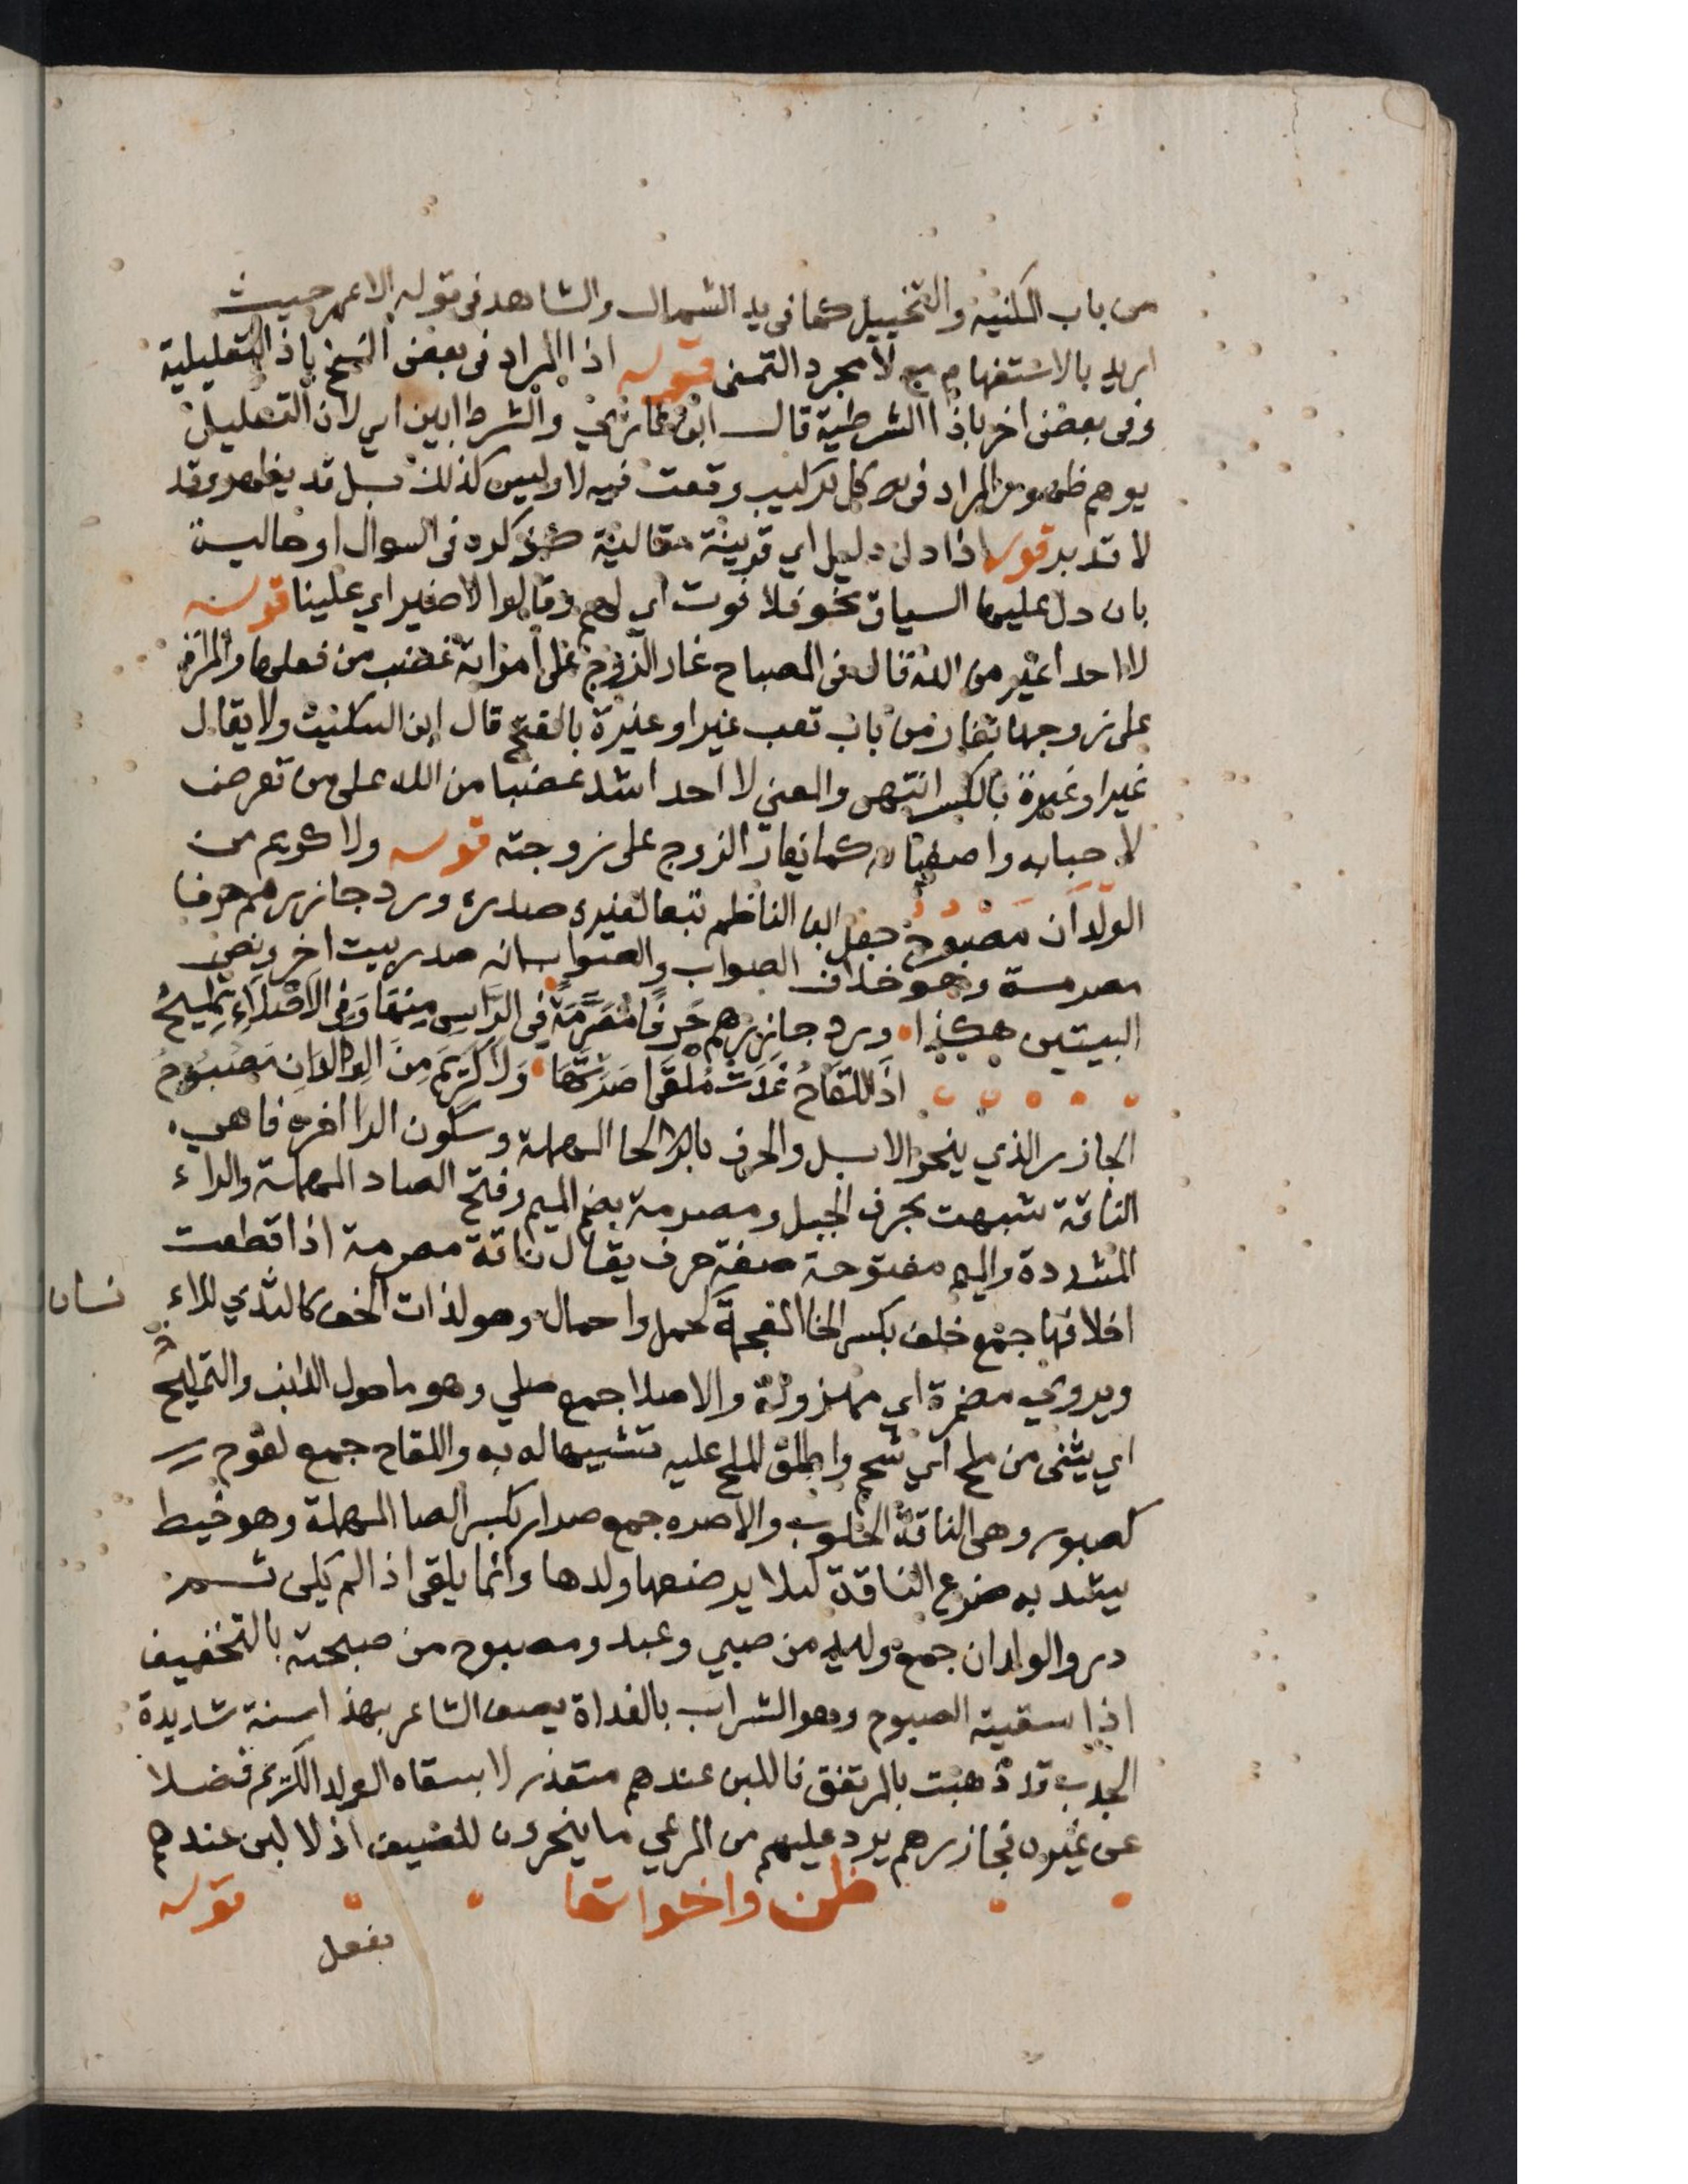 من باب الكنية والتخييل كما في يد الشمال والشاهد في قوله الاعمر حيث
اريد بالاستفهام مع لا مجرد التمني قوله اذا المراد في بعض النسخ باذ التعليلية
وفي بعض اخر باذا الشرطية قال ابن غازي والشرط ابين اي لان التعليل
يوهم ظهور المراد في كل تركيب وقعت فيه لا وليس كذلك بل قد يظهر وقد
لا تدبر قوله اذا دل دليل اي قرينة مقالية كذكره في السوال او حالية
بان دل عليها السياق نحو فلا فوت اي لهم وقالوا لا ضير اي علينا قوله
لا احد اغير من الله قال في المصباح غار الزوج على امراته غضب من فعلها والمراة
على زوجها تغار من باب تعب غيرا وغيرة بالفتح قال ابن السكيت ولا يقال
غيرا وغيرة بالكسر انتهى والمعنى لا احد اشد غضبا من الله على من تعرض
لاحبابه واصفيائه كما يغار الزوج على زوجته قوله ولا كريم من
الولدان مصبوح جعل ابن الناظم تبعا لغيره صدره ورد جازرهم حرفا
مصرمة وهو خلاف الصواب والصواب انه صدر بيت اخر ونص
البيتين هكذا ورد جازرهم حرفا مصرمة في الراس منها وفي الاصلاء تمليح
اذ اللقاح غدت ملقى اصرتها ولا كريم من الولدان مصبوح
الجازر الذي ينحر الابل والحرف بالحا المهملة وسكون الرا اخره فا هي
الناقة شبهت بحرف الجبل ومصرمة بضم الميم وفتح الصاد المهملة والراء
المشددة والميم مفتوحة صفة حرف يقال ناقة مصرمة اذا قطعت
اخلافها جمع خلف بكسر الخا المعجمة كحمل واحمال وهو لذات الخف كالثدي للمراء
نسان
ويروي مضمرة اي مهزولة والاصلا جمع صلي وهو ما حول الذنب والتمليح
اي يثنى من ملح اي شحم واطلق الملح عليه تشبيها له به واللقاح جمع لقوح
كصبور وهي الناقة الحلوب والاصره جمع صرار بكسر الصا المهملة وهو خيط
يشد به ضرع الناقة لئلا يرضعها ولدها وانما يلقى اذا لم يكن ثم
در والولدان جمع وليد من صبي وعبد ومصبوح من صبحته بالتخفيف
اذا سقيته الصبوح وهو الشراب بالغداة يصف الشاعر بهذا سنة شديدة
الجدب قد ذهبت بالمرتفق فاللبن عندهم متعذر لا يسقاه الولد الكريم فضلا
عن غيره فجازرهم يرد عليهم من المرعي ما ينحرون للضيف اذ لا لبن عندهم
ظن واخواتها قوله
بفعل